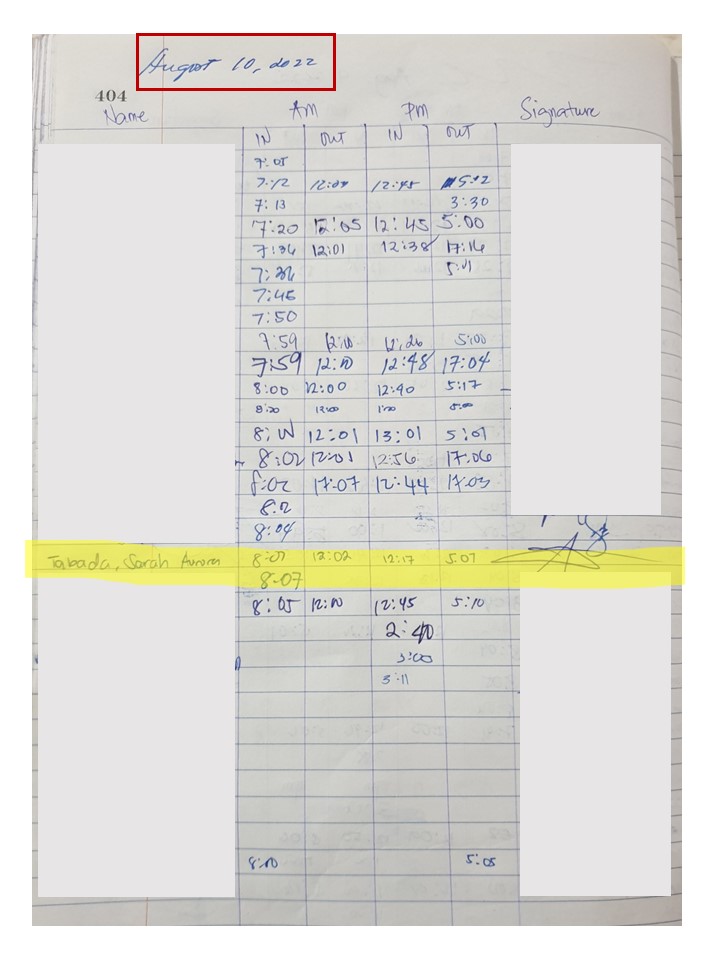 August 10, 2022
404
Name AM PM Signature
IN OUT IN OUT
7:05
7:12 12:45 5:12
7:13 3:30
7:20 12:05 12:45 5:00
7:36 12:01 12:38 17:16
7:46
7:50
7:59 12:10 12:20 5:00
7:59 12:10 12:48 17:04
8:00 12:00 12:40 5:17
12:01 13:01 5:01
8:02 12:01 12:56 17:06
8:02 17:07 12:44 17:03
8:04
Tabada, Sarah Aurora 8:07 12:02 12:17 5:07
8:07
8:05 12:10 12:45 5:10
2:40
3:00
3:11
8:10 5:05